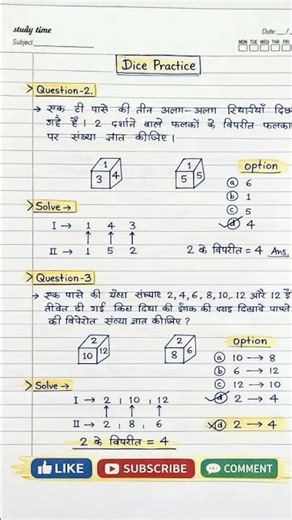 study time
Date: __/
Subject
MON TUE WED THU FRI
Dice Practice
Question-2.
→ एक ही पासे की तीन अलग-अलग स्थितियाँ
गई हैं। 2 दर्शाने वाले फलकों के विपरीत फलक
पर संख्या ज्ञात कीजिए।
1
3 4
1
5 5
option
(a) 6
(b) 1
(c) 5
(d) 4
Solve →
I → 1 4 3
II → 1 5 2
2 के विपरीत = 4 Ans.
Question-3
→ एक पासे की संख्याए 2, 4, 6, 8, 10, 12 और 12
दी गई किस की
की संख्या ज्ञात कीजिए ?
2
10 12
2
8 6
Option
(a) 10 → 8
(b) 6 → 12
(c) 12 → 10
(d) 2 → 4
Solve →
I → 2 , 10 , 12
II → 2 , 8 , 6
(d) 2 → 4
2 के विपरीत = 4
LIKE
SUBSCRIBE
COMMENT